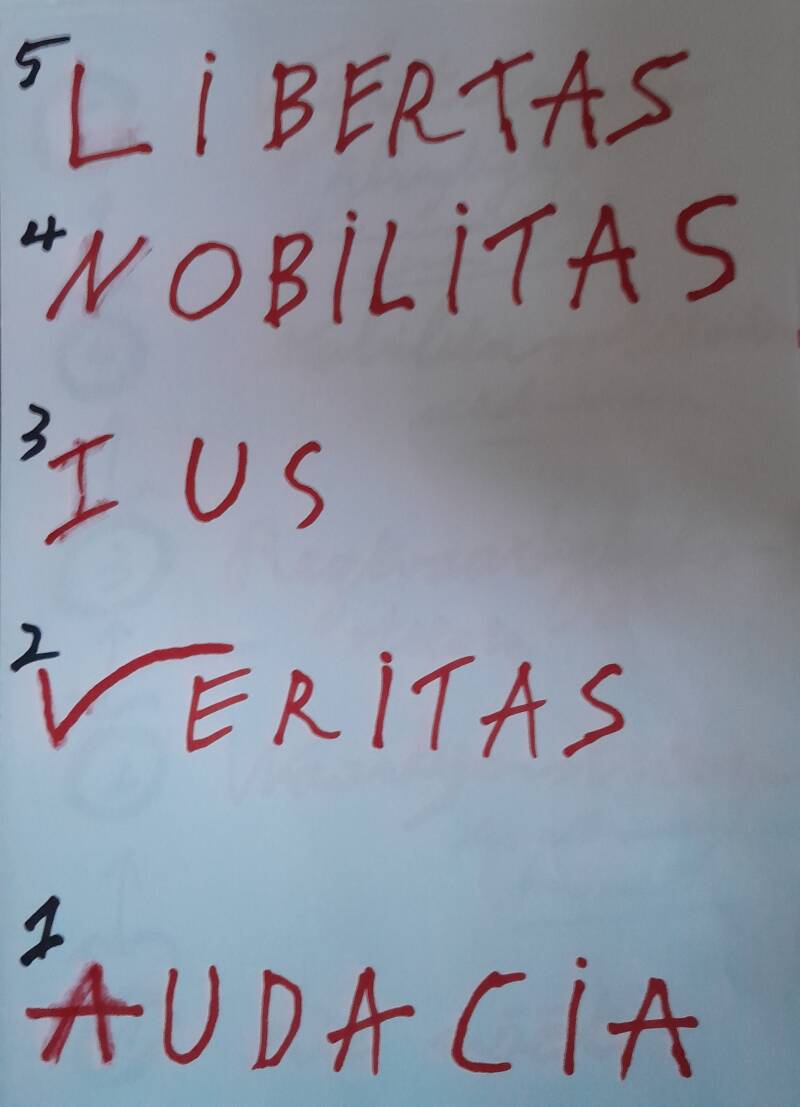 5 LiBERTAS
4 NOBiLiTAS
3 IUS
2 VERiTAS
1 AUDACiA